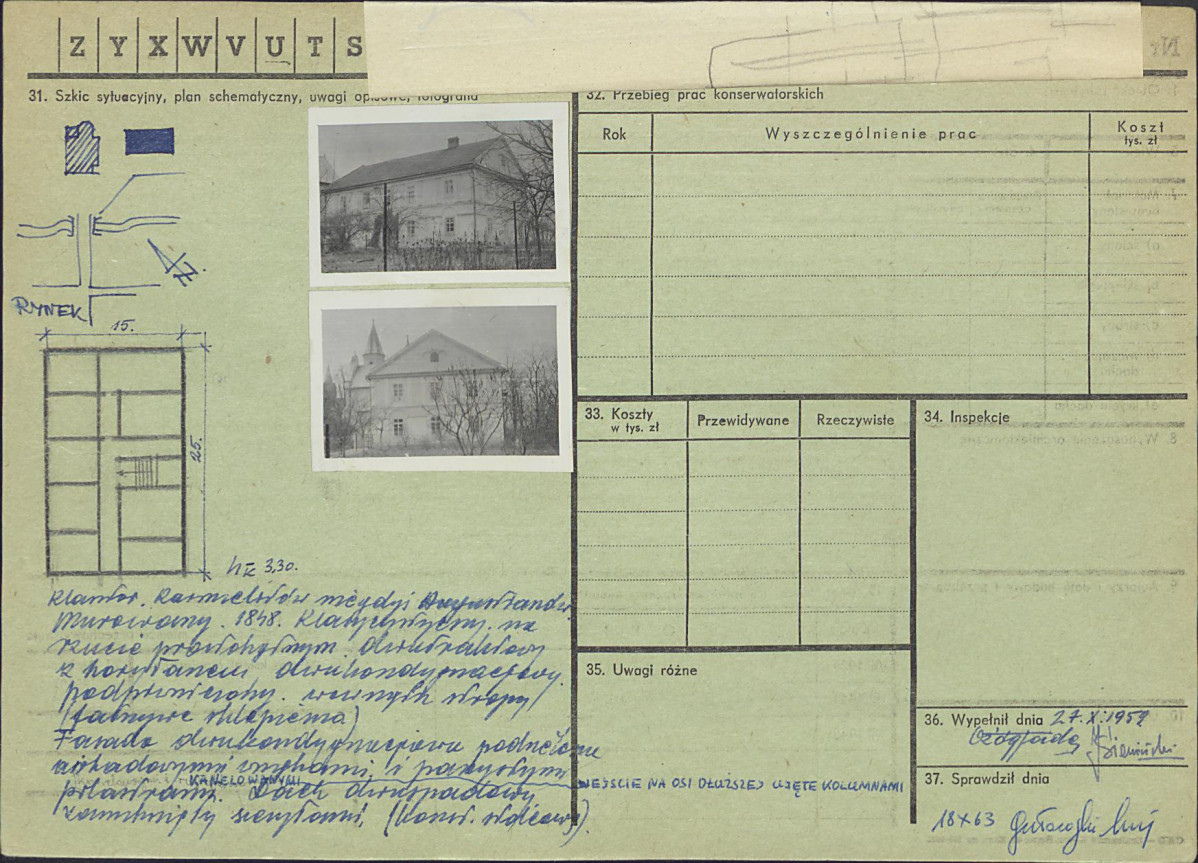 Z Y X W V U T S
31. Szkic sytuacyjny, plan schematyczny, uwagi opisowe, fotografia
RYNEK
15.
25.
h= 3,30.
Klasztor. Karmelitów
Murowany. 1848. Klasycystyczny. na
rzucie prostokątnym. dwutraktowy
z korytarzem dwukondygnacjowy.
podpiwniczony. wewnątrz stropy
(fałszywe sklepienia)
Fasada dwukondygnacjowa podzielona
arkadowymi wnękami i parzystymi
KANELOWANYMI
pilastrami. Dach dwuspadowy
zamknięty szczytami.
32. Przebieg prac konserwatorskich
Rok
Wyszczególnienie prac
Koszt
tys. zł
33. Koszty
w tys. zł
Przewidywane
Rzeczywiste
34. Inspekcje
35. Uwagi różne
WEJŚCIE NA OSI DŁUŻSZEJ UJĘTE KOLUMNAMI
36. Wypełnił dnia 27.X.1959
37. Sprawdził dnia
18 X 63